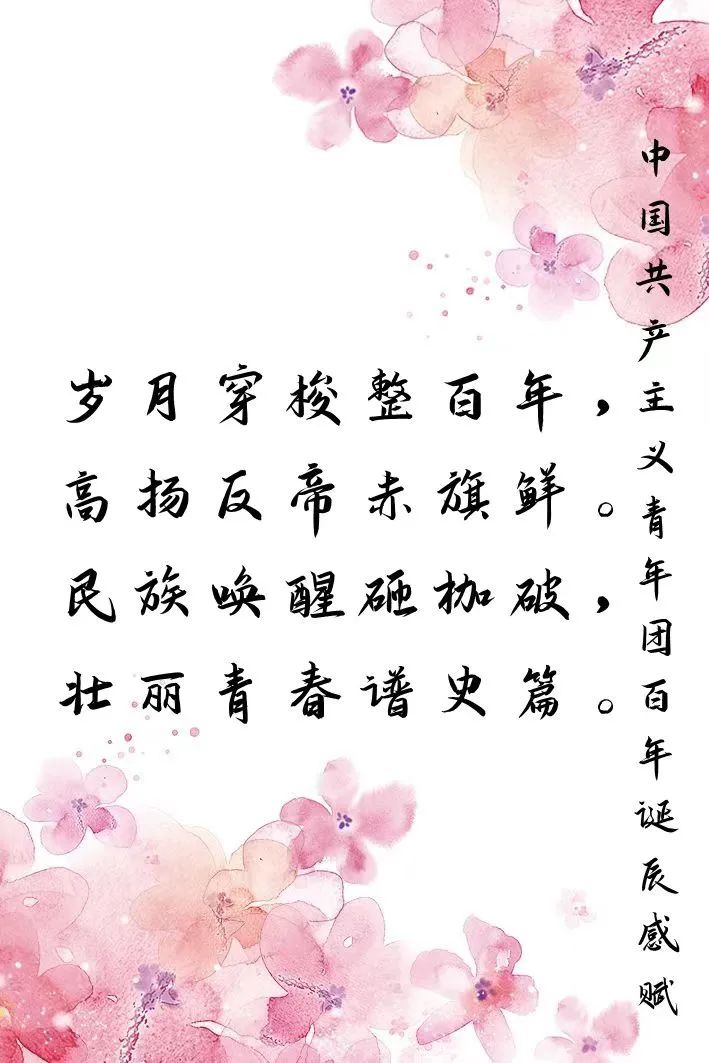 中国共产主义青年团百年诞辰感赋
岁月穿梭整百年，
高扬反帝赤旗鲜。
民族唤醒砸枷破，
壮丽青春谱史篇。